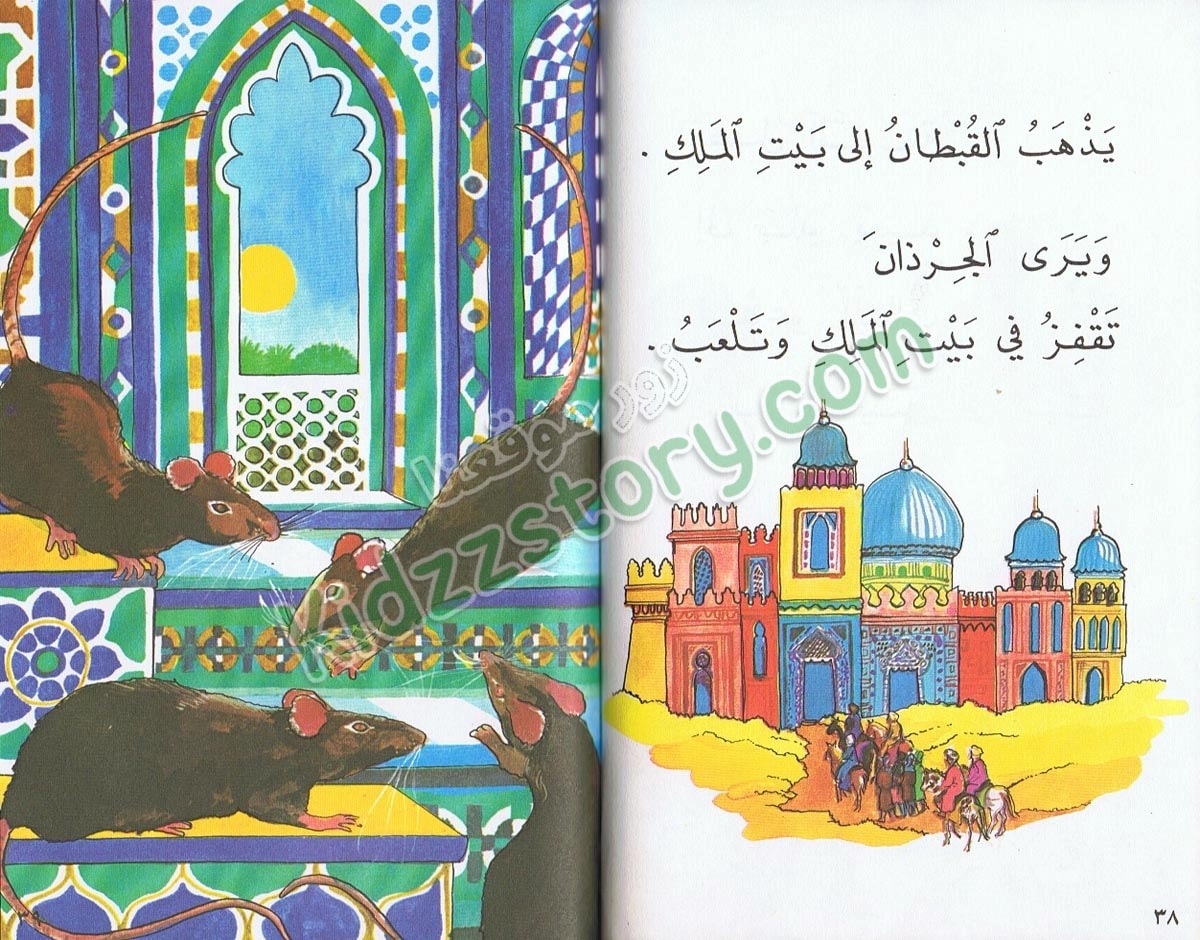 يَذْهَبُ ٱلقُبْطانُ إلى بَيْتِ ٱلمَلِكِ .
وَيَرَى ٱلجِرْذانَ
تَقْفِزُ في بَيْتِ ٱلمَلِكِ وَتَلْعَبُ .
زور موقعنا
kidzzstory.com
٣٨
٣٩